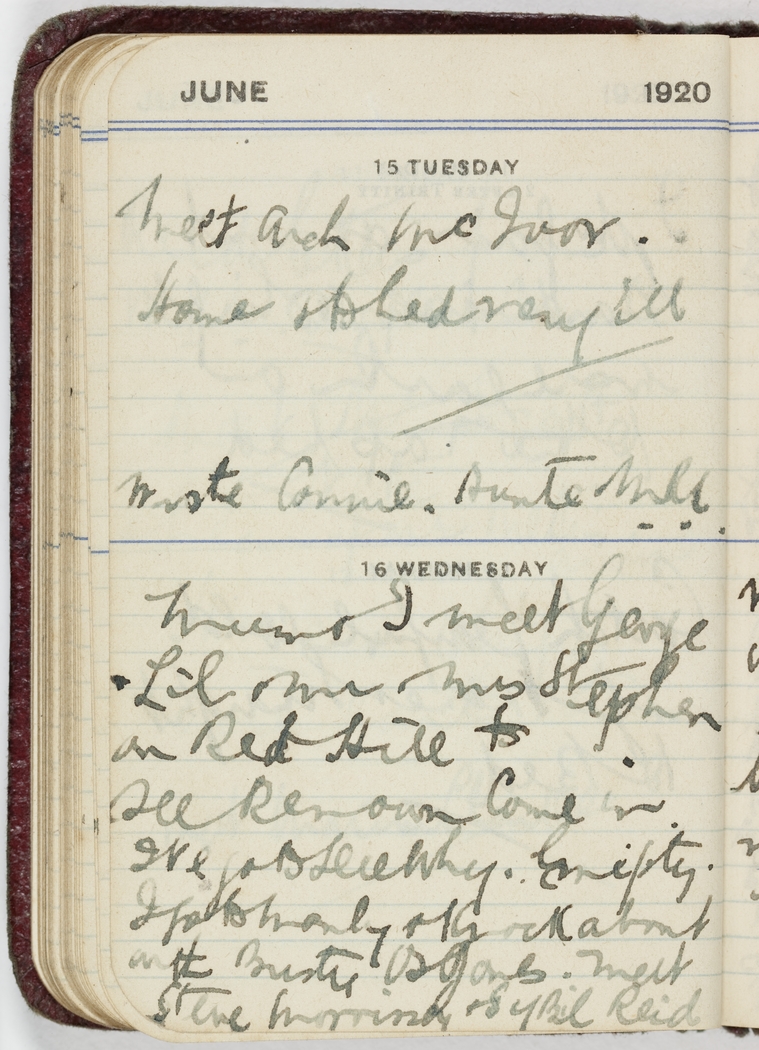 JUNE 1920
15 TUESDAY
Meet Arch McIvor.
Home & to bed very ill
Wrote Connie. Auntie Mill
16 WEDNESDAY
Mum & I meet George
Lil & Mr & Mrs Stephen
on Red Hill to
see Renown Come in.
We go to see Why. Empty.
I go to Manly & Knock about
with Jones. Meet
Steve Morrison & Sybil Reid